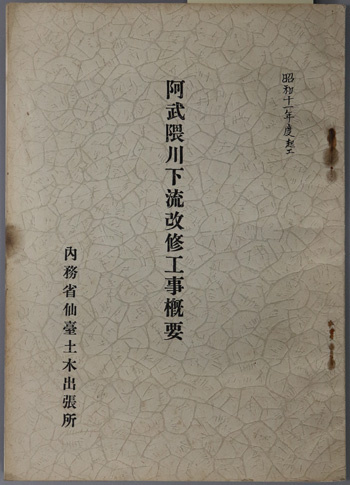 昭和十一年度起工
阿武隈川下流改修工事概要
內務省仙臺土木出張所